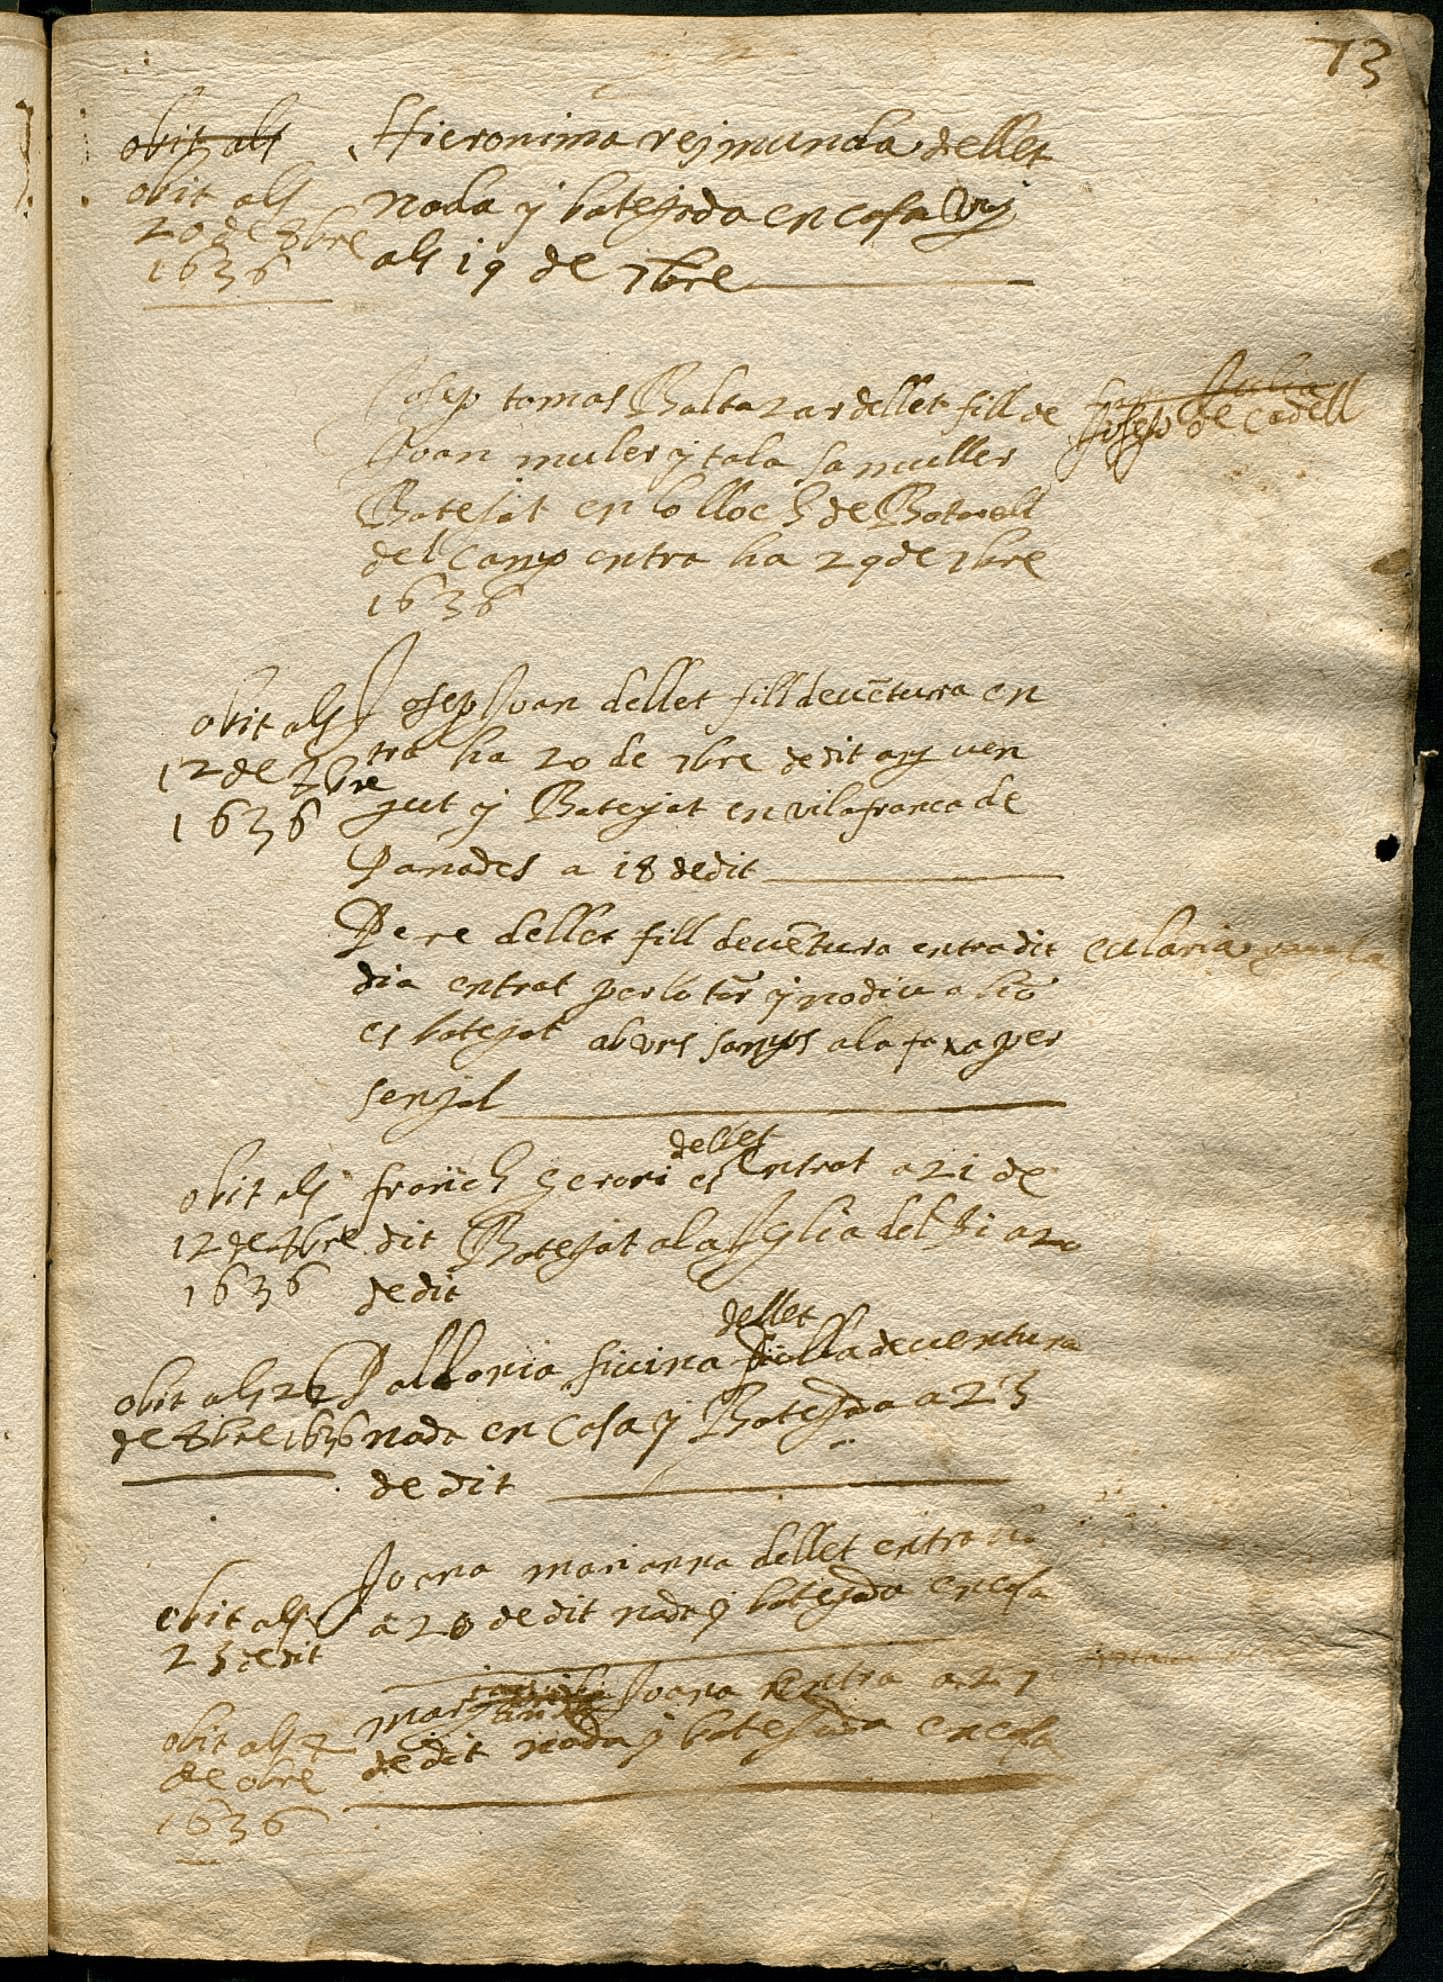 73
obit als
obit als
20 de 8bre
1636
Hieronima rejmunda dellet
nada y batejada en casa vuy
als 19 de 7bre
Josep tomas Baltazar dellet fill de
Joan muler y tala sa muller
Batejat en lo lloch de Botarell
del Camp entra ha 29 de 7bre
1636
Julia
Josep de Cadell
obit als
12 de 8bre
1636
Josep Joan dellet fill de vētura en
tra ha 20 de 7bre de dit any ven
gut y Batejat en vilafranca de
Panades a 18 de dit
Pere dellet fill de vētura entra dit
dia entrat per lo tor y no diu a hō
es batejat ab vns samps a la faxa per
senyal
eularia
obit als
12 de 8bre
1636
franch geroni dellet es entrat a 21 de
dit Batejat a la Iglia del Pi a 20
de dit
obit als 22
de 8bre 1636
Pallonia sivina dellet filla de ventura
nada en Casa y Batejada a 23
de dit
obit als
23 de dit
Joana marianna dellet entra
a 26 de dit nada y batejada en casa
obit als 2
de obre
1636
margarida Joana entra a 27
de dit nada y batejada en casa